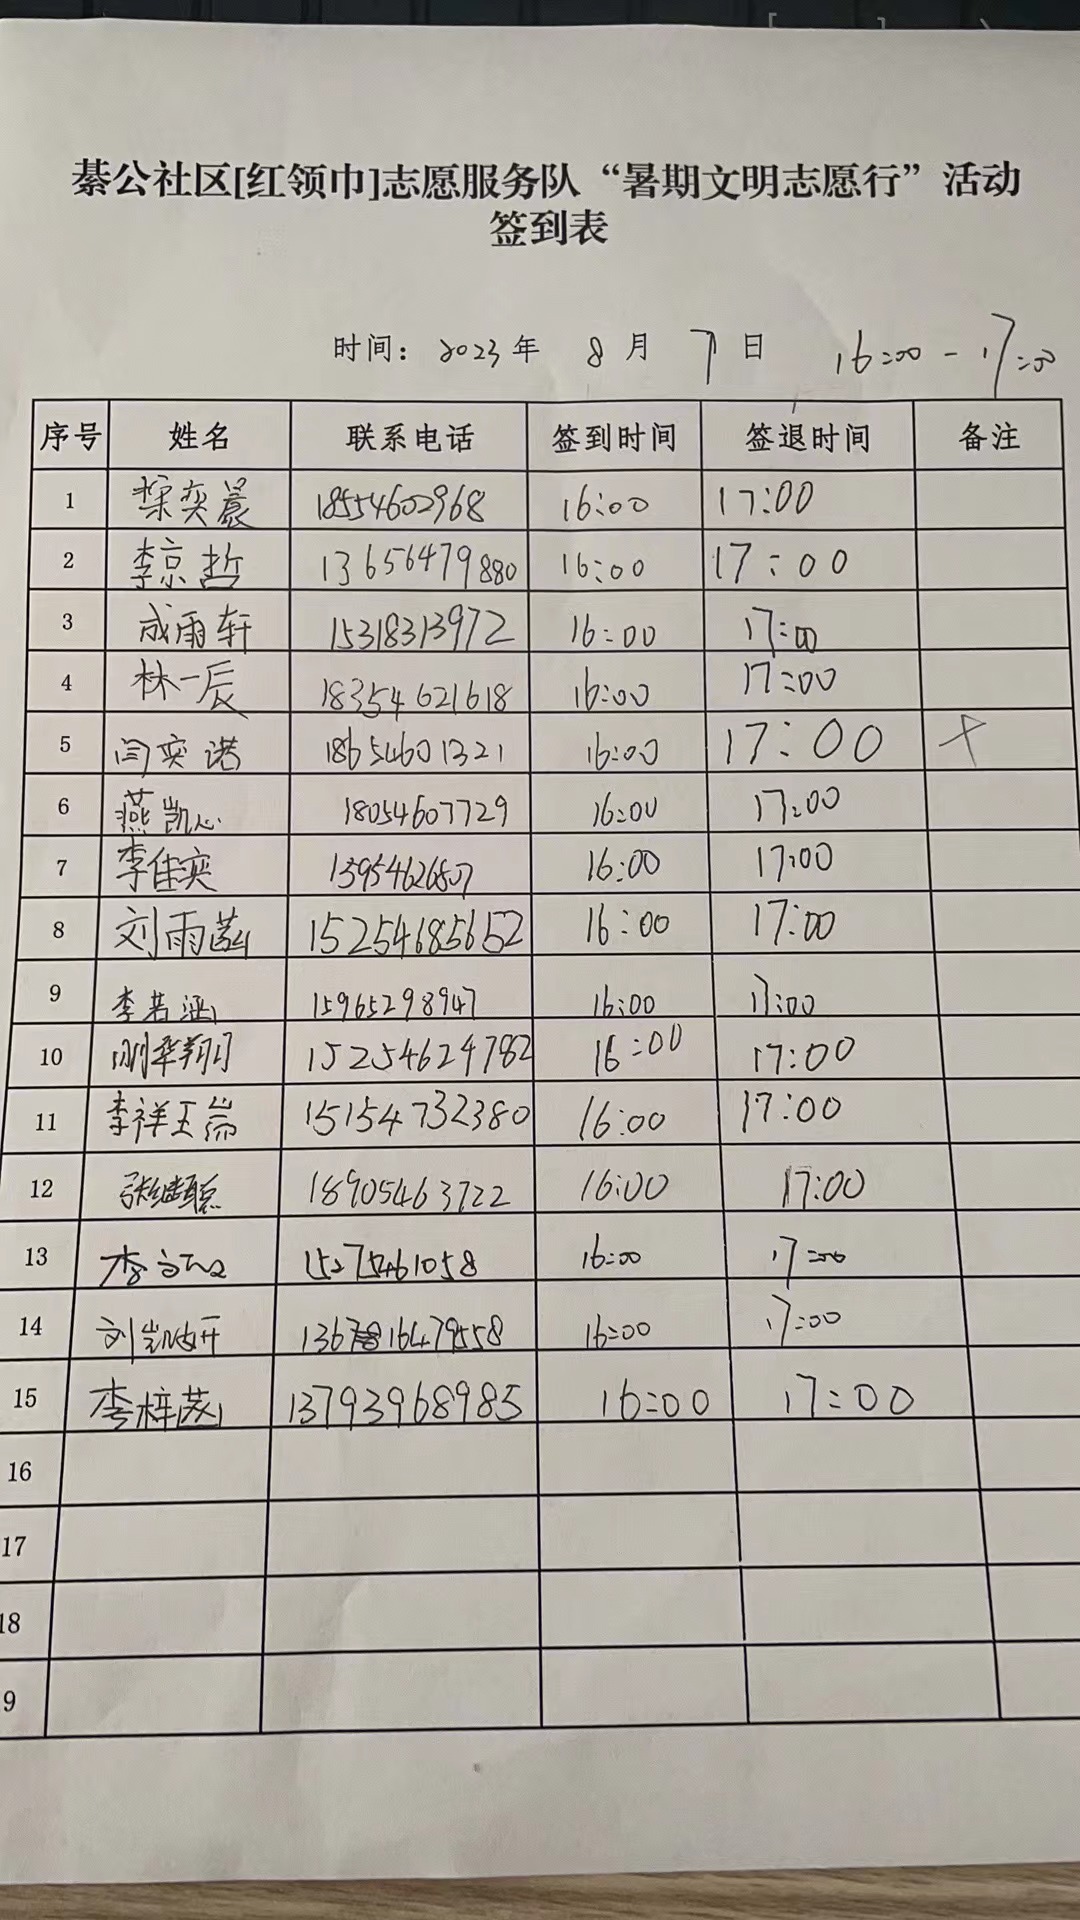 綦公社区[红领巾]志愿服务队“暑期文明志愿行”活动
签到表
时间：2023年 8月 7日 16:00-17:00
序号 姓名 联系电话 签到时间 签退时间 备注
1 梁奕晨 18554602968 16:00 17:00
2 李京哲 13656479880 16:00 17:00
3 成雨轩 15318313972 16:00 17:00
4 林一辰 18354621618 16:00 17:00
5 闫奕诺 18654601321 16:00 17:00
6 燕凯心 18054607729 16:00 17:00
7 李佳奕 13954626807 16:00 17:00
8 刘雨菡 15254685652 16:00 17:00
9 李若涵 15965298947 16:00 17:00
10 15254624782 16:00 17:00
11 李祥玉 15154732380 16:00 17:00
12 张继聪 18905463722 16:00 17:00
13 李 15275461058 16:00 17:00
14 刘凯 16:00 17:00
15 李梓菡 13793968985 16:00 17:00
16
17
18
9